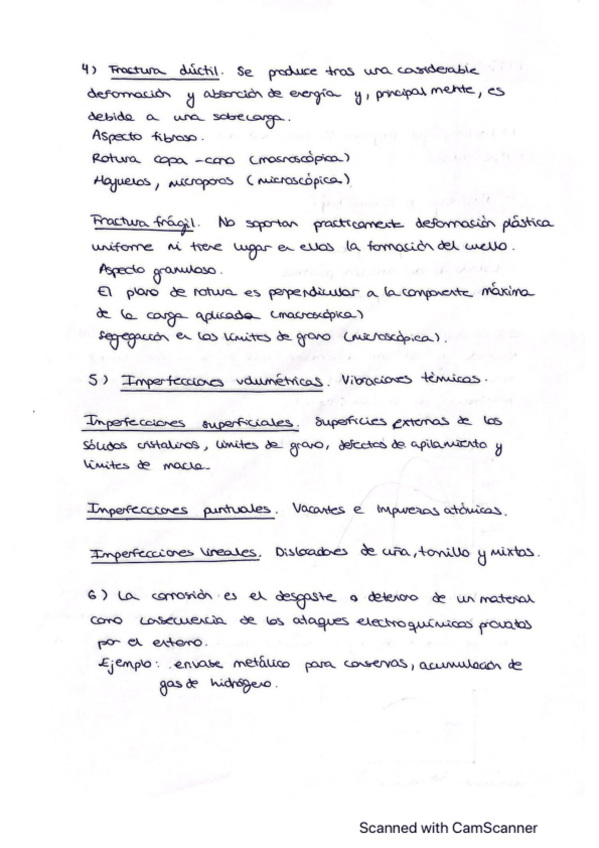 4) Fractura dúctil. Se produce tras una considerable
deformación y absorción de energía y, principalmente, es
debida a una sobrecarga.
Aspecto fibroso.
Rotura copa-cono (macroscópica)
Hoyuelos, microporos (microscópica)
Fractura frágil. No soportan practicamente deformación plástica
uniforme ni tiene lugar en ellos la formación del cuello.
Aspecto granuloso.
El plano de rotura es perpendicular a la componente máxima
de la carga aplicada (macroscópica)
Segregación en los límites de grano (microscópica).
5) Imperfecciones volumétricas. Vibraciones térmicas.
Imperfecciones superficiales. Superficies externas de los
sólidos cristalinos, límites de grano, defectos de apilamiento y
límites de macla.
Imperfecciones puntuales. Vacantes e impurezas atómicas.
Imperfecciones lineales. Dislocaciones de cuña, tornillo y mixtas.
6) La corrosión es el desgaste o deterioro de un material
como consecuencia de los ataques electroquímicos
por el entorno.
Ejemplo: envase metálico para conservas, acumulación de
gas de hidrógeno.
Scanned with CamScanner